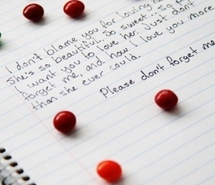 I don't blame you for loving her
She's so beautiful. So sweet.
I want you to love her. Just don't
forget me, and how I love you more
than she ever could.
Please don't forget me